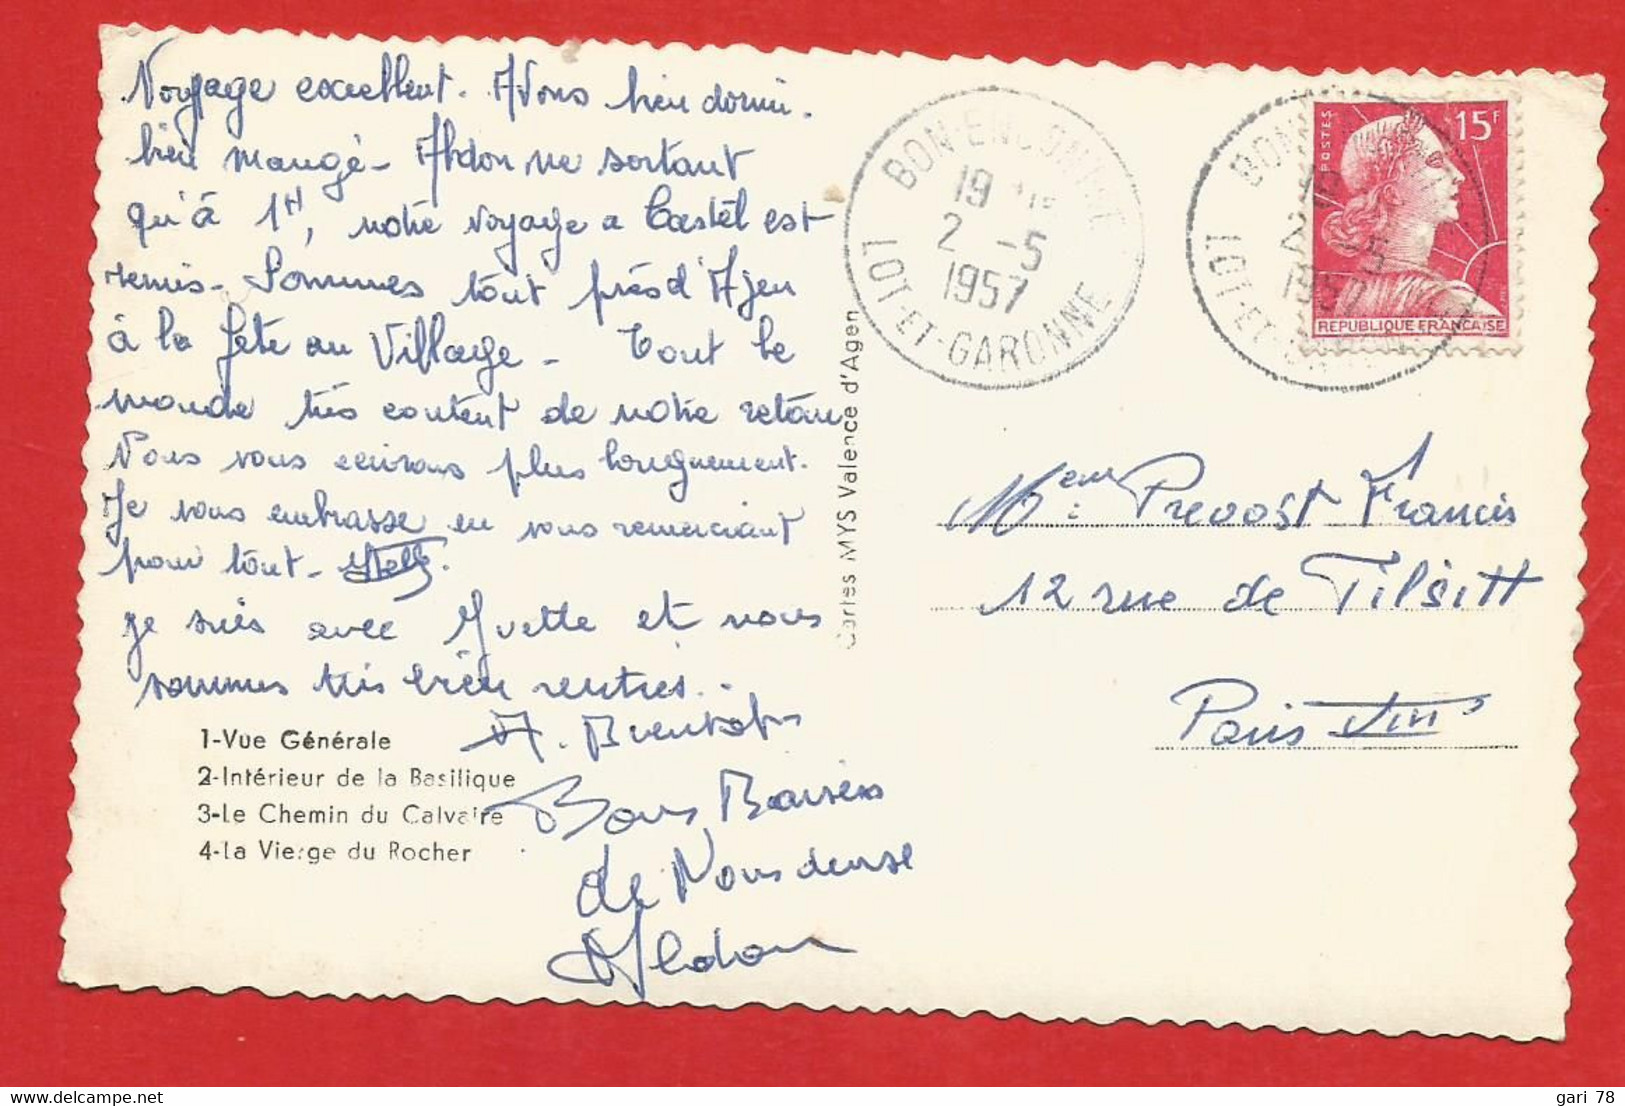 Voyage excellent. Avons bien dormi.
bien mangé - Abdon ne sortant
qu'à 1H, notre voyage a Castel est
remis - Sommes tout près d'Agen
à la fête au Village - Tout le
monde très content de notre retour
Nous vous ecrirons plus longuement.
Je vous embrasse en vous remerciant
pour tout -
je suis avec Yvette et nous
sommes très bien rentrés..
A.
Bons Baisers
de Nous deux
Abdon
1-Vue Générale
2-Intérieur de la Basilique
3-Le Chemin du Calvaire
4-La Vierge du Rocher
Cartes MYS Valence d'Agen
BON-ENCONTRE
19
2 -5
1957
LOT-ET-GARONNE
BON
19
2 -5
1957
LOT-ET-GARONNE
POSTES
15F
REPUBLIQUE FRANÇAISE
Mme Prevost Francis
12 rue de Tilsitt
Paris VIII
gari 78